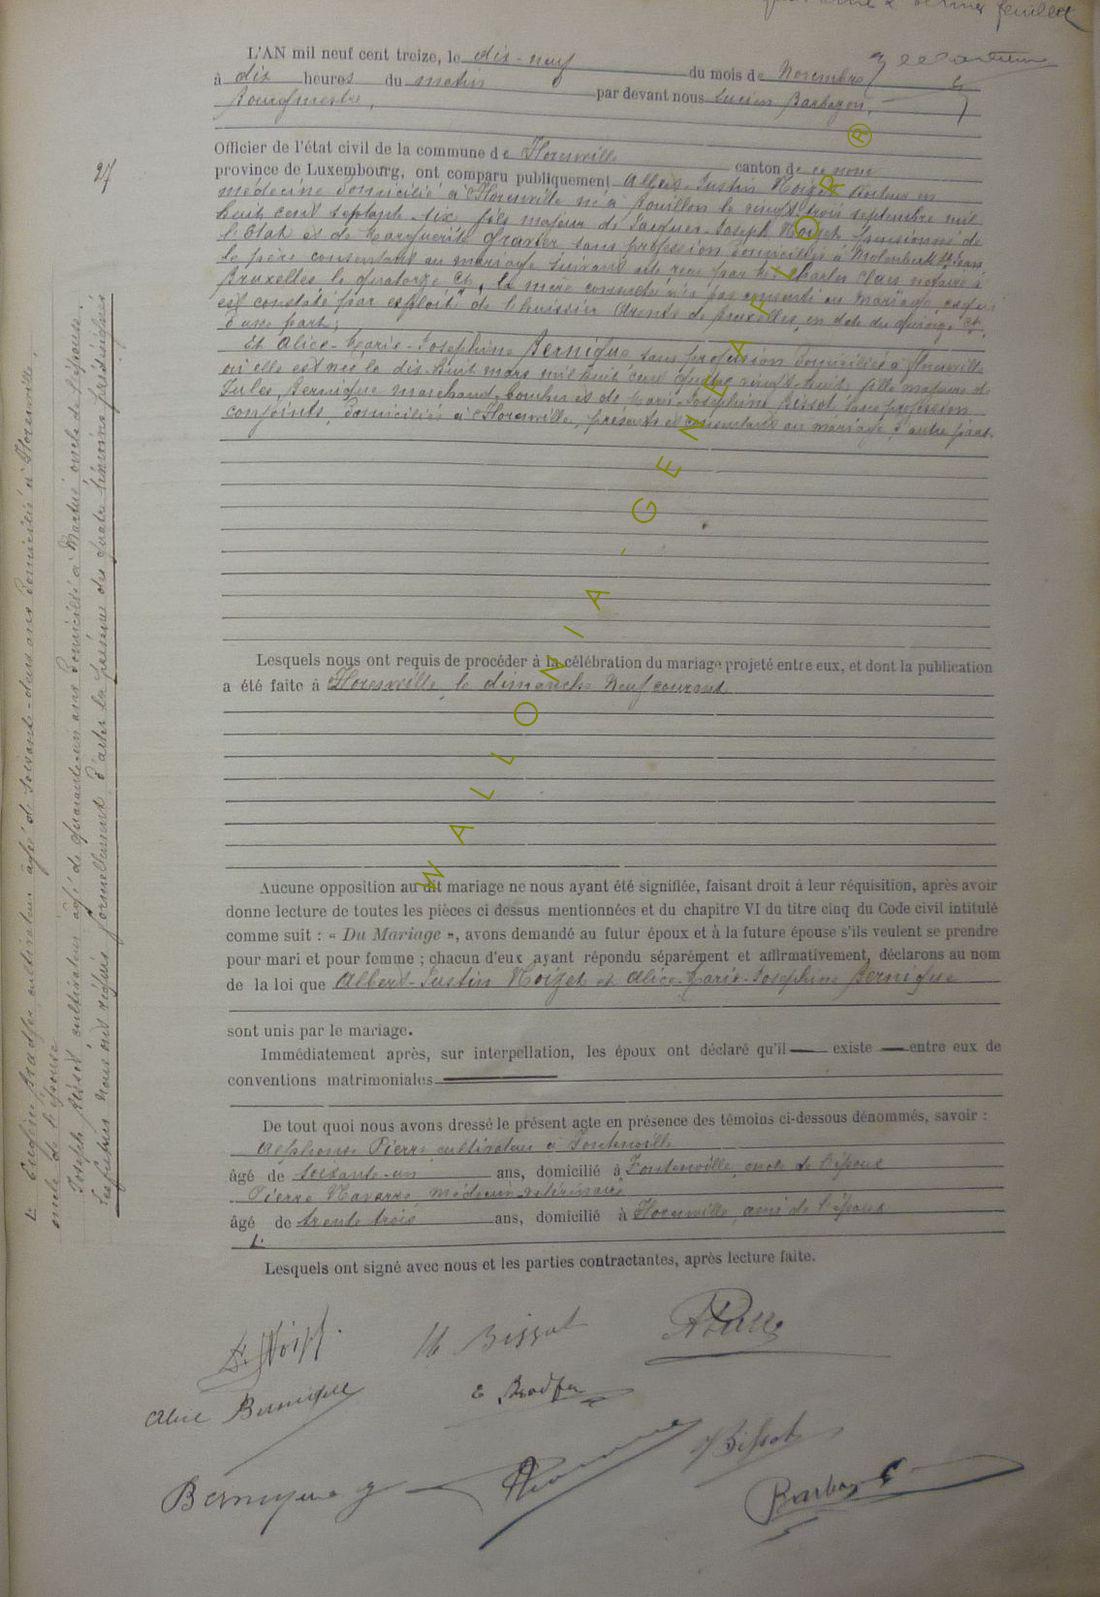 dernier feuillet
L'AN mil neuf cent treize, le dix-neuf du mois de Novembre
à dix heures du matin par devant nous Lucien Barbazon,
Bourgmestre,
Officier de l'état civil de la commune de Florenville canton de ce nom
province de Luxembourg, ont comparu publiquement Albert-Justin Noizet docteur en
médecine domicilié à Florenville né à Bouillon le vingt-trois septembre mil
huit cent septante-six fils majeur de Jacques-Joseph Noizet pensionné de
l'Etat et de Marguerite Gravier sans profession domiciliés à Molenbeek St Jean
le père consentant au mariage suivant acte reçu par Charles Claes notaire à
Bruxelles le quatorze ct, la mère n'a pas consenti au mariage
est constaté par exploit de l'huissier de Bruxelles, en date du quinze ct,
d'une part;
Et Alice-Marie-Joséphine Bernique sans profession domiciliée à Florenville
où elle est née le dix-huit mars mil huit cent quatre vingt-huit, fille majeure de
Jules Bernique marchand boucher et de Marie-Joséphine Bissot sans profession
conjoints, domiciliés à Florenville, présents et consentants au mariage, d'autre part.
27
Lesquels nous ont requis de procéder à la célébration du mariage projeté entre eux, et dont la publication
a été faite à Florenville, le dimanche neuf courant
Aucune opposition au dit mariage ne nous ayant été signifiée, faisant droit à leur réquisition, après avoir
donne lecture de toutes les pièces ci dessus mentionnées et du chapitre VI du titre cinq du Code civil intitulé
comme suit : « Du Mariage », avons demandé au futur époux et à la future épouse s'ils veulent se prendre
pour mari et pour femme ; chacun d'eux ayant répondu séparément et affirmativement, déclarons au nom
de la loi que Albert-Justin Noizet et Alice-Marie-Joséphine Bernique
sont unis par le mariage.
Immédiatement après, sur interpellation, les époux ont déclaré qu'il — existe — entre eux de
conventions matrimoniales
De tout quoi nous avons dressé le présent acte en présence des témoins ci-dessous dénommés, savoir :
Alphonse Pierre cultivateur à Fontenoille
âgé de soixante-un ans, domicilié à Fontenoille, oncle de l'époux
Pierre Navarre médecin vétérinaire
âgé de trente trois ans, domicilié à Florenville, ami de l'époux
Lesquels ont signé avec nous et les parties contractantes, après lecture faite.
cultivateur âgé de soixante-deux ans domicilié à Florenville,
oncle de l'épouse
Joseph Bissot cultivateur âgé de quarante-un ans domicilié à Martué oncle de l'épouse.
Les futurs nous ont requis formellement d'acter la présence des quatre témoins prédésignés
M Bissot
Alice Bernique
E Bradfer
Bernique J
J Bissot
Barbazon
WALLONIA-GENEALFLOR®